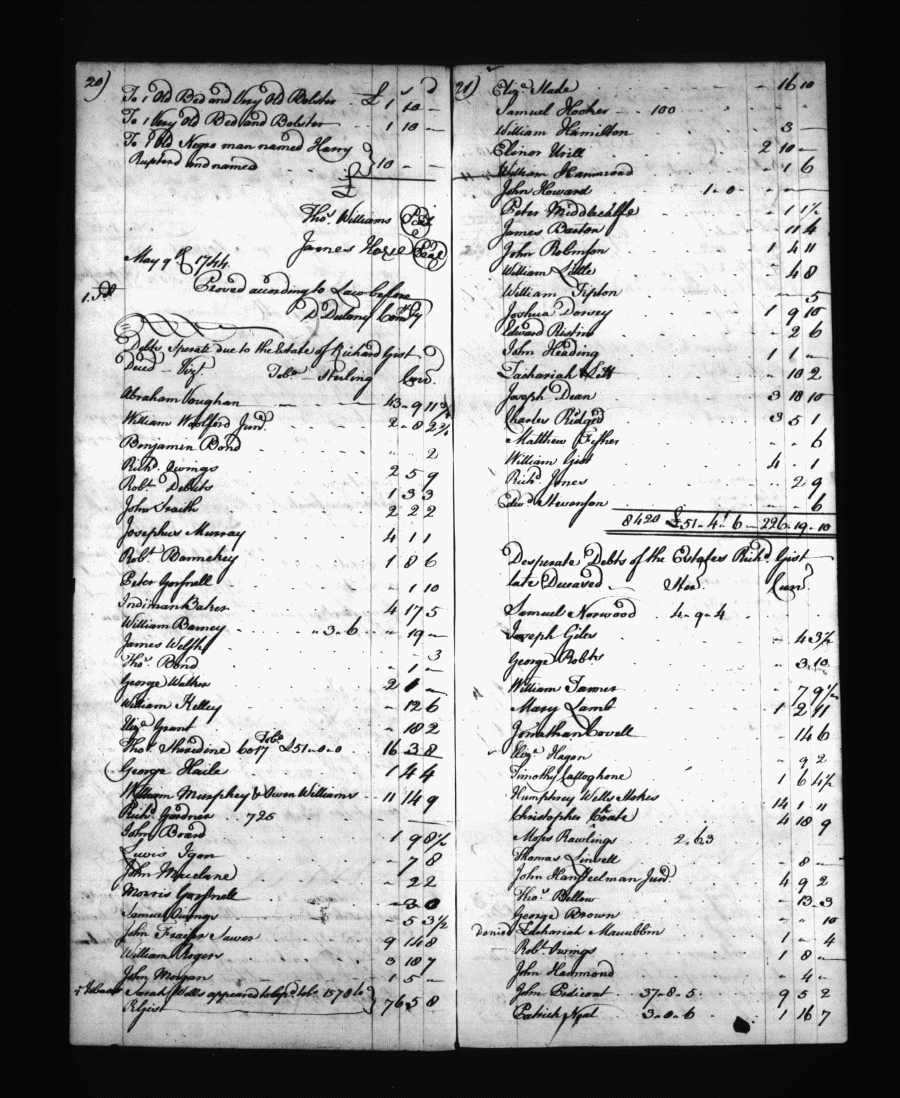 20) £ s d
To 1 Old Bed and Very Old Bolster £ 1 10 -
To 1 Very Old Bed and Bolster 1 10 -
To 1 Old Negro man named Harry
Rupterd and named } 10 - -
£
Thos. Williams Seal
James Seal
May 9th 1744
Proved according to Law before
D Dulany Comry
Debts Sperate due to the Estate of Richard Gist
Deced - Vizt. Tobo. - Sterling Curr.
Abraham Vaughan 43 - 9 11 3/4
William Woolford Junr. 2 - 8 2 3/4
Benjamin Bond 2
Richd. Owings 2 5 9
Robt. Debuts 1 3 3
John 2 2 2
Josephus Murray 4 1 1
Robt. 1 8 6
Peter Gosnell 1 10
Indiman Baker 4 17 5
William Barney 3 - 6 19 -
James Welsh 3
Thos. Bond 1 -
George Walker 2 1 -
William Kelley 12 6
Elizа. Grant 18 2
Thos. Sheredine 6017 Tobo. £51-0-0 16 3 8
George Haile 1 4 4
William Murphey & Owen Williams 11 14 9
Richd. Gardner 725
John Board 1 9 8 1/2
Lewis 7 8
John Maclane 2 2
Morris Gosnell 3 0
Samuel Owings 5 3 1/2
John Frasier Sawer 9 14 8
William Rogers 3 18 7
John Morgan 1 5 -
Sarah Wells appeared to 1578 to
R Gist } 76 5 8
21) Eliza. Slade 16 10
Samuel Hooker 100
William Hamilton 3 -
Elinor Urill 2 10 -
William Hammond 1 6
John Howard 1 - 0
Peter Middlecalfe 1 1 1/2
James Barton 11 4
John Robinson 1 4 11
William Little 4 8
William Tipton 5
Joshua Dorsey 1 9 10
Edward Riston 2 6
John Heading 1 1 -
Zachariah 10 2
Joseph Dean 3 18 10
Charles Ridged 3 5 1
Matthew Fisher 6
William Gist 4 - 1
Richd. Jones 2 9
Edwd. Stevenson 6
8420 £51 - 4 - 6 - 226 - 19 - 10
Desperate Debts of the Estate of Richd. Gist
late Deceased Ster. Curr.
Samuel Norwood 4 - 9 - 4
Joseph Giles 4 3 1/2
George Robts 3 10
William Tanner 7 9 1/2
Mary Lamb 1 2 11
Jonathan Covell 14 6
Eliza. Hagon 9 2
Timothy 1 6 4 1/2
Humphrey Wells Stokes 14 1 11
Christopher Choate 4 18 9
Moses Rawlings 2.63
Thomas Linvell 8 -
John Hansteelman Junr. 4 9 2
Thos. Bellow 13 - 3
George Brown 10
denied Zachariah Maccubbin 1 - 4
Robt. Owings 1 8 -
John Hammond 4 -
John 37 - 8 - 5 9 5 2
Patrick 3 - 0 - 6 1 16 7